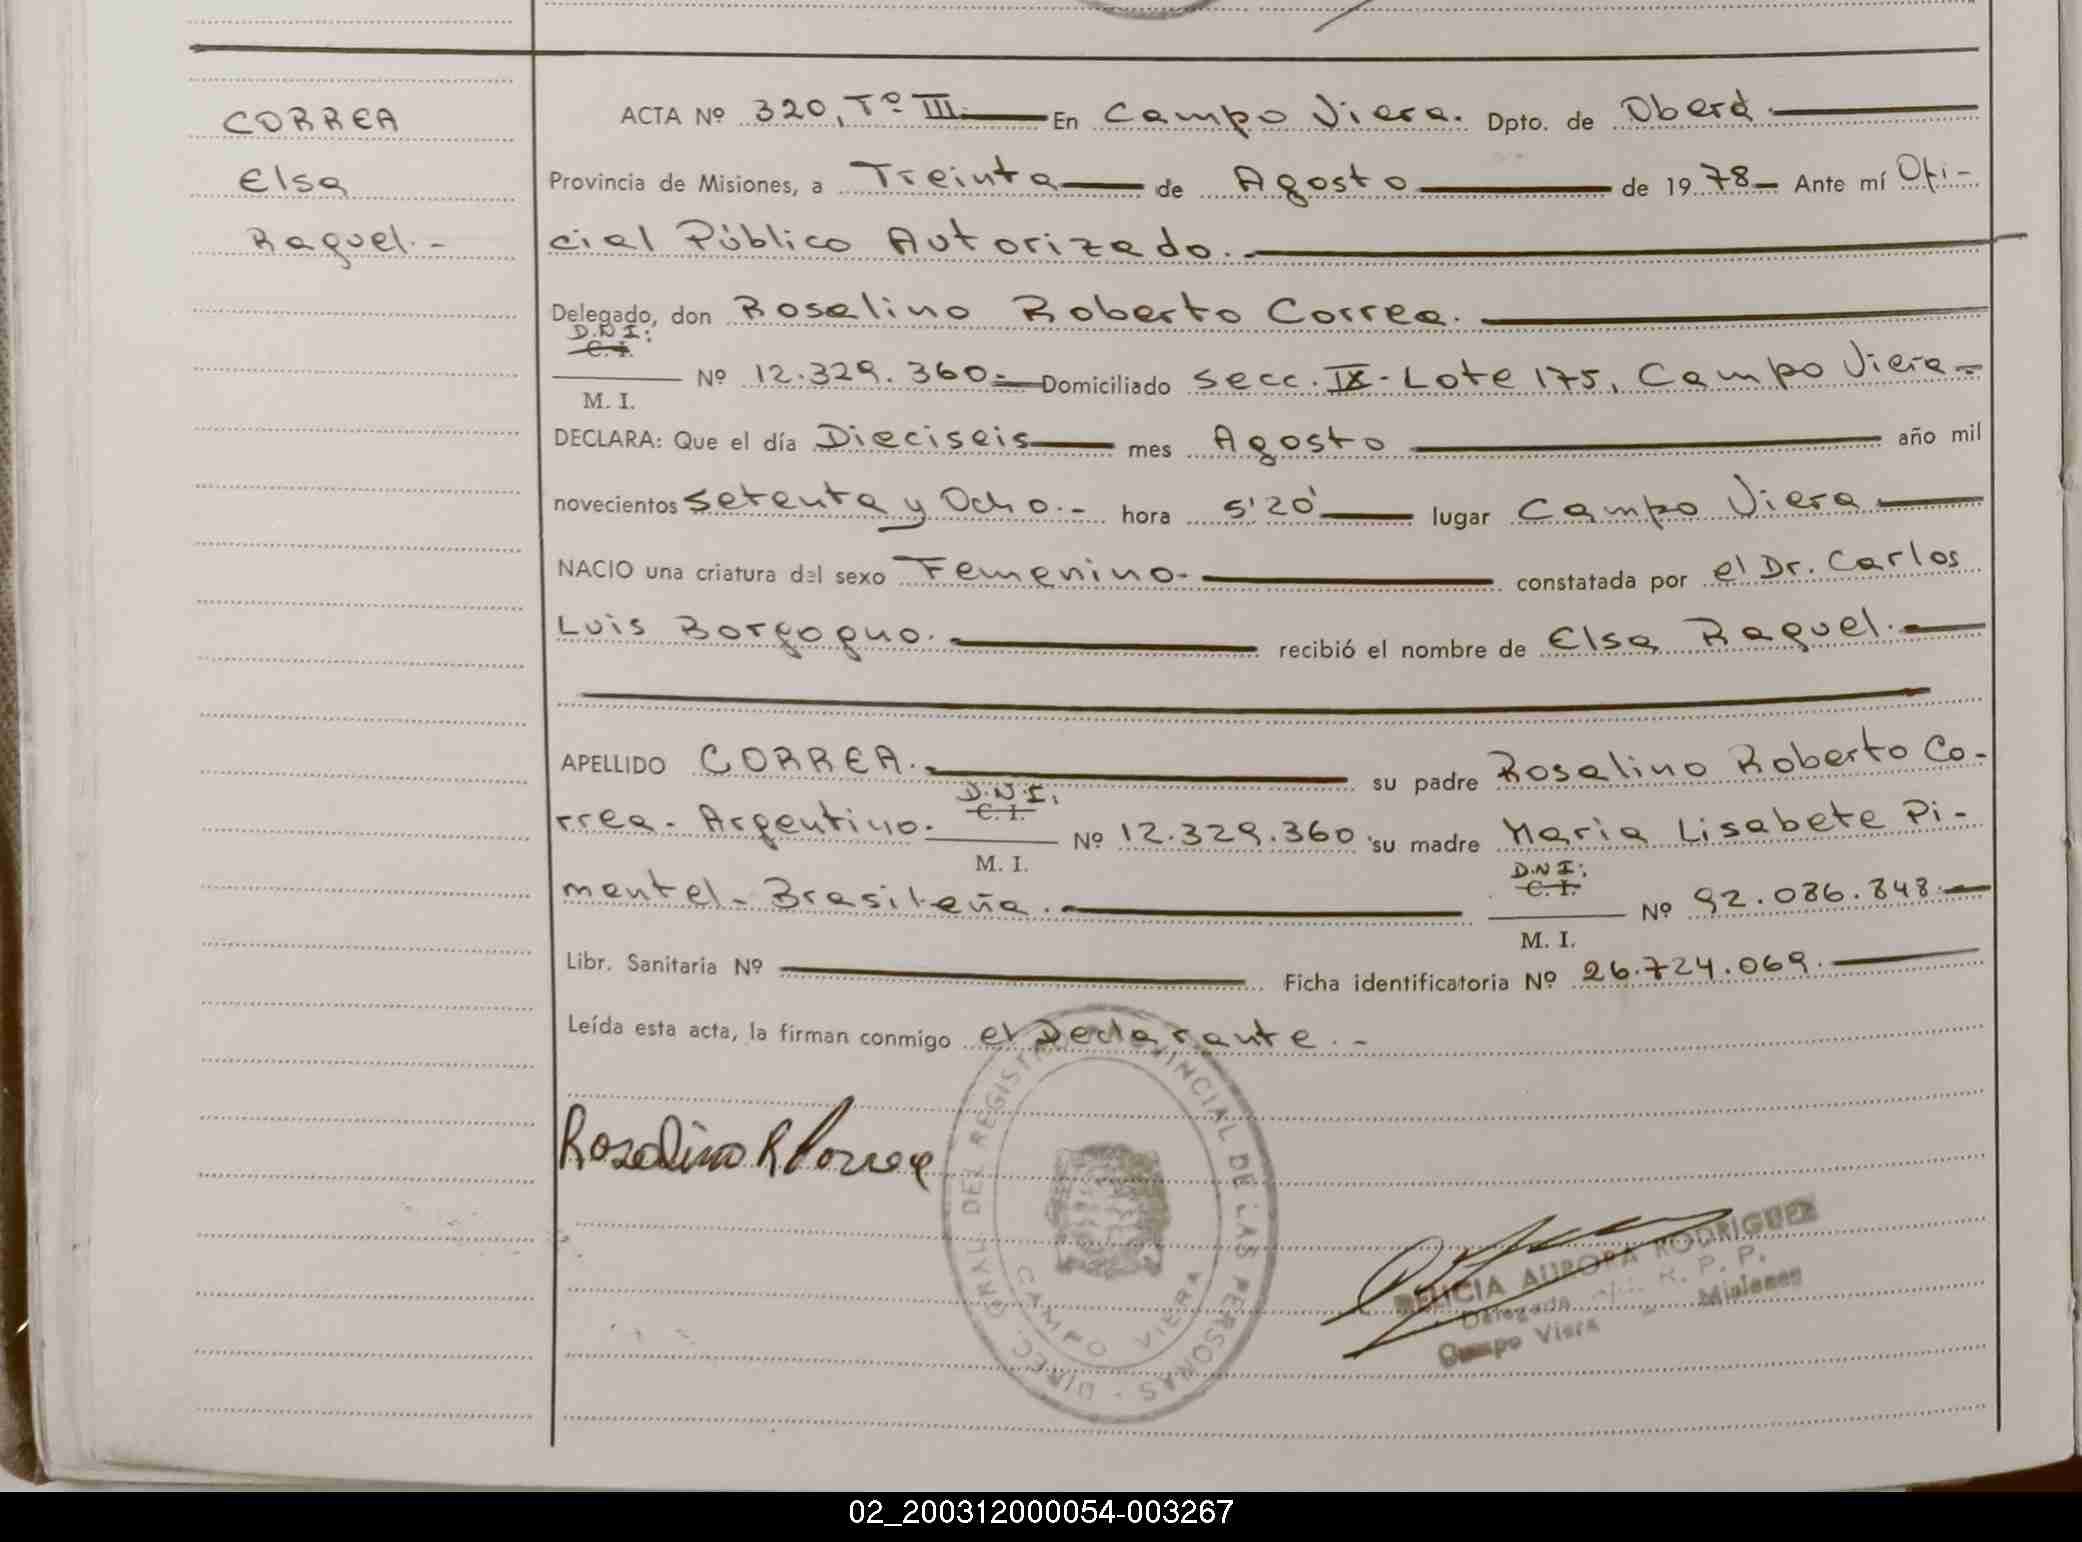 CORREA
Elsa
Raquel.-
ACTA Nº 320, Tº III. En Campo Viera. Dpto. de Oberá.
Provincia de Misiones, a Treinta de Agosto de 1978 Ante mí Ofi-
cial Público Autorizado.
Delegado, don Rosalino Roberto Correa.
D.N.I:
C. I.
Nº 12.329.360.- Domiciliado Secc. IX- Lote 175, Campo Viera-
M. I.
DECLARA: Que el día Dieciseis mes Agosto año mil
novecientos Setenta y Ocho.- hora 5'20' lugar Campo Viera
NACIO una criatura del sexo Femenino. constatada por el Dr. Carlos
Luis Borgogno. recibió el nombre de Elsa Raquel.
APELLIDO CORREA. su padre Rosalino Roberto Co-
D.N.I.
C. I.
rrea- Argentino. Nº 12.329.360 su madre Maria Lisabete Pi-
M. I.
D.N I:
C. I.
mentel- Brasileña. Nº 92.086.848.
M. I.
Libr. Sanitaria Nº Ficha identificatoria Nº 26.724.069.
Leída esta acta, la firman conmigo el Declarante.-
Rosalino R Correa
DIREC. GRAL DEL REGISTRO PROVINCIAL DE LAS PERSONAS
CAMPO VIERA
FELICIA AURORA RODRIGUEZ
Delegada R. P. P.
Campo Viera - Misiones
02_200312000054-003267